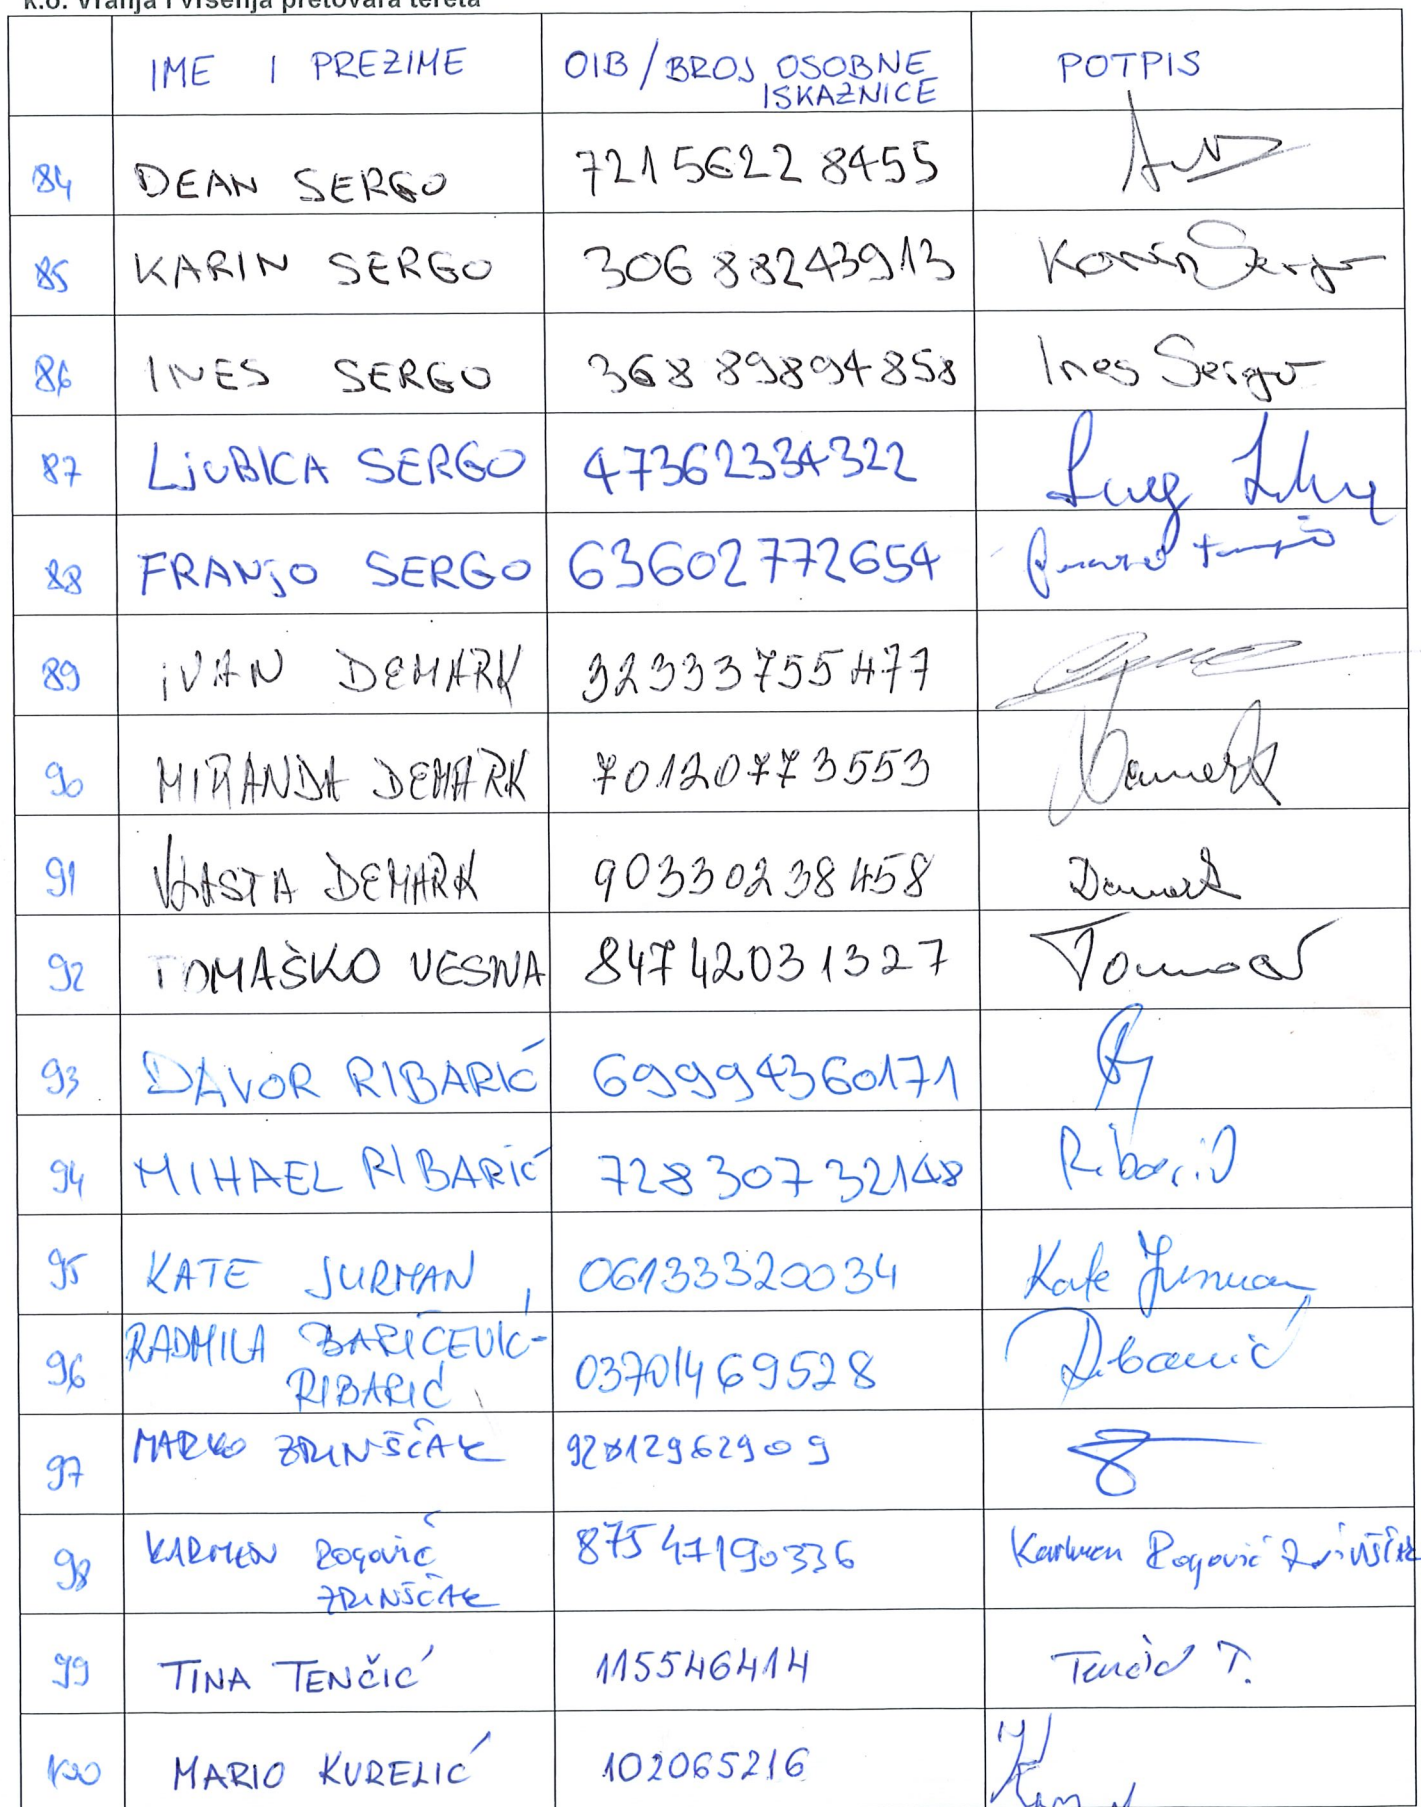 k.o. Vranja i vršenja pretovara tereta
IME I PREZIME OIB/BROJ OSOBNE ISKAZNICE POTPIS
84 DEAN SERGO 72156228455
85 KARIN SERGO 30688243913 Karin Sergo
86 INES SERGO 36889894858 Ines Sergo
87 LJUBICA SERGO 47362334322
88 FRANJO SERGO 63602772654
89 IVAN DEMARK 32333755477
90 MIRANDA DEMARK 70120773553 Demark
91 VLASTA DEMARK 90330238458 Demark
92 TOMAŠKO VESNA 84742031327
93 DAVOR RIBARIĆ 69994360171
94 MIHAEL RIBARIĆ 72830732148 Ribarić
95 KATE JURMAN 06133320034 Kate Jurman
96 RADMILA BARIČEVIĆ-
RIBARIĆ 03701469528 Ribarić
97 MARKO ZRINŠČAK 92812962909
98 KARMEN ROGOVIĆ
ZRINŠČAK 87547190336 Karmen Rogović Zrinščak
99 TINA TENČIĆ 115546414 Tenčić T.
100 MARIO KURELIĆ 102065216